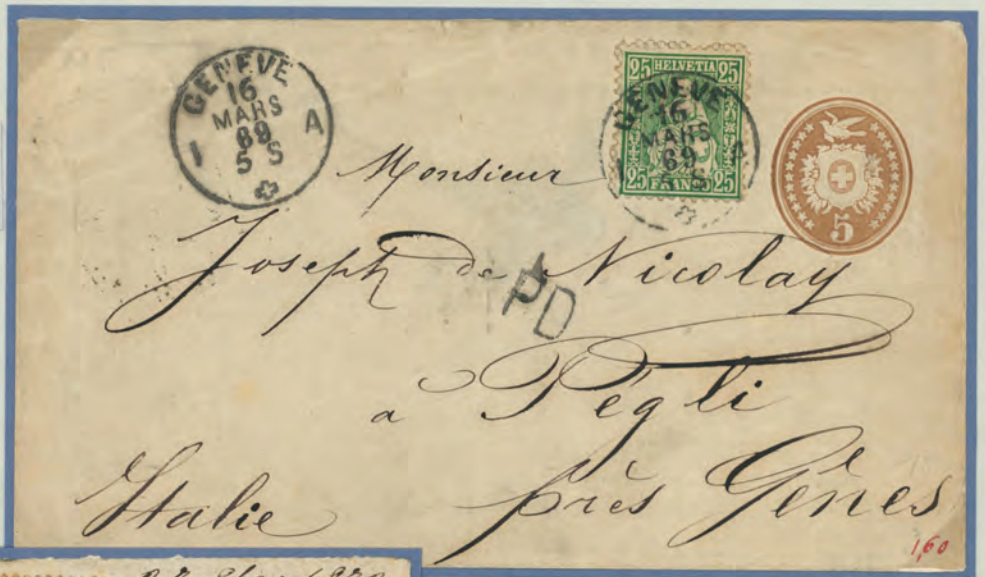 GENEVE
16
MARS
69
5 S
I A
25 HELVETIA 25
GENEVE
16
MARS
69
25 FRANCO 25
5
Monsieur
Joseph de Nicolay
PD
a Pégli
près Gênes
Italie
1,60